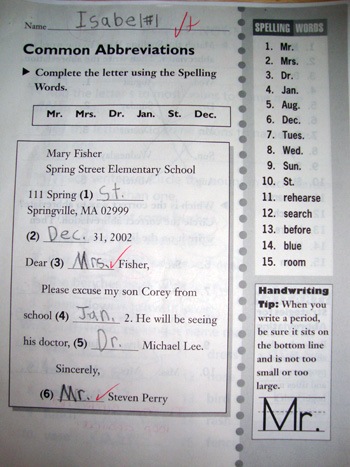 Name Isabel #1 √+
Common Abbreviations
▶ Complete the letter using the Spelling
Words.
Mr. Mrs. Dr. Jan. St. Dec.
Mary Fisher
Spring Street Elementary School
111 Spring (1) St.
Springville, MA 02999
(2) Dec. 31, 2002
Dear (3) Mrs. Fisher,
Please excuse my son Corey from
school (4) Jan. 2. He will be seeing
his doctor, (5) Dr. Michael Lee.
Sincerely,
(6) Mr. Steven Perry
SPELLING WORDS
1. Mr.
2. Mrs.
3. Dr.
4. Jan.
5. Aug.
6. Dec.
7. Tues.
8. Wed.
9. Sun.
10. St.
11. rehearse
12. search
13. before
14. blue
15. room
Handwriting
Tip: When you
write a period,
be sure it sits on
the bottom line
and is not too
small or too
large.
Mr.